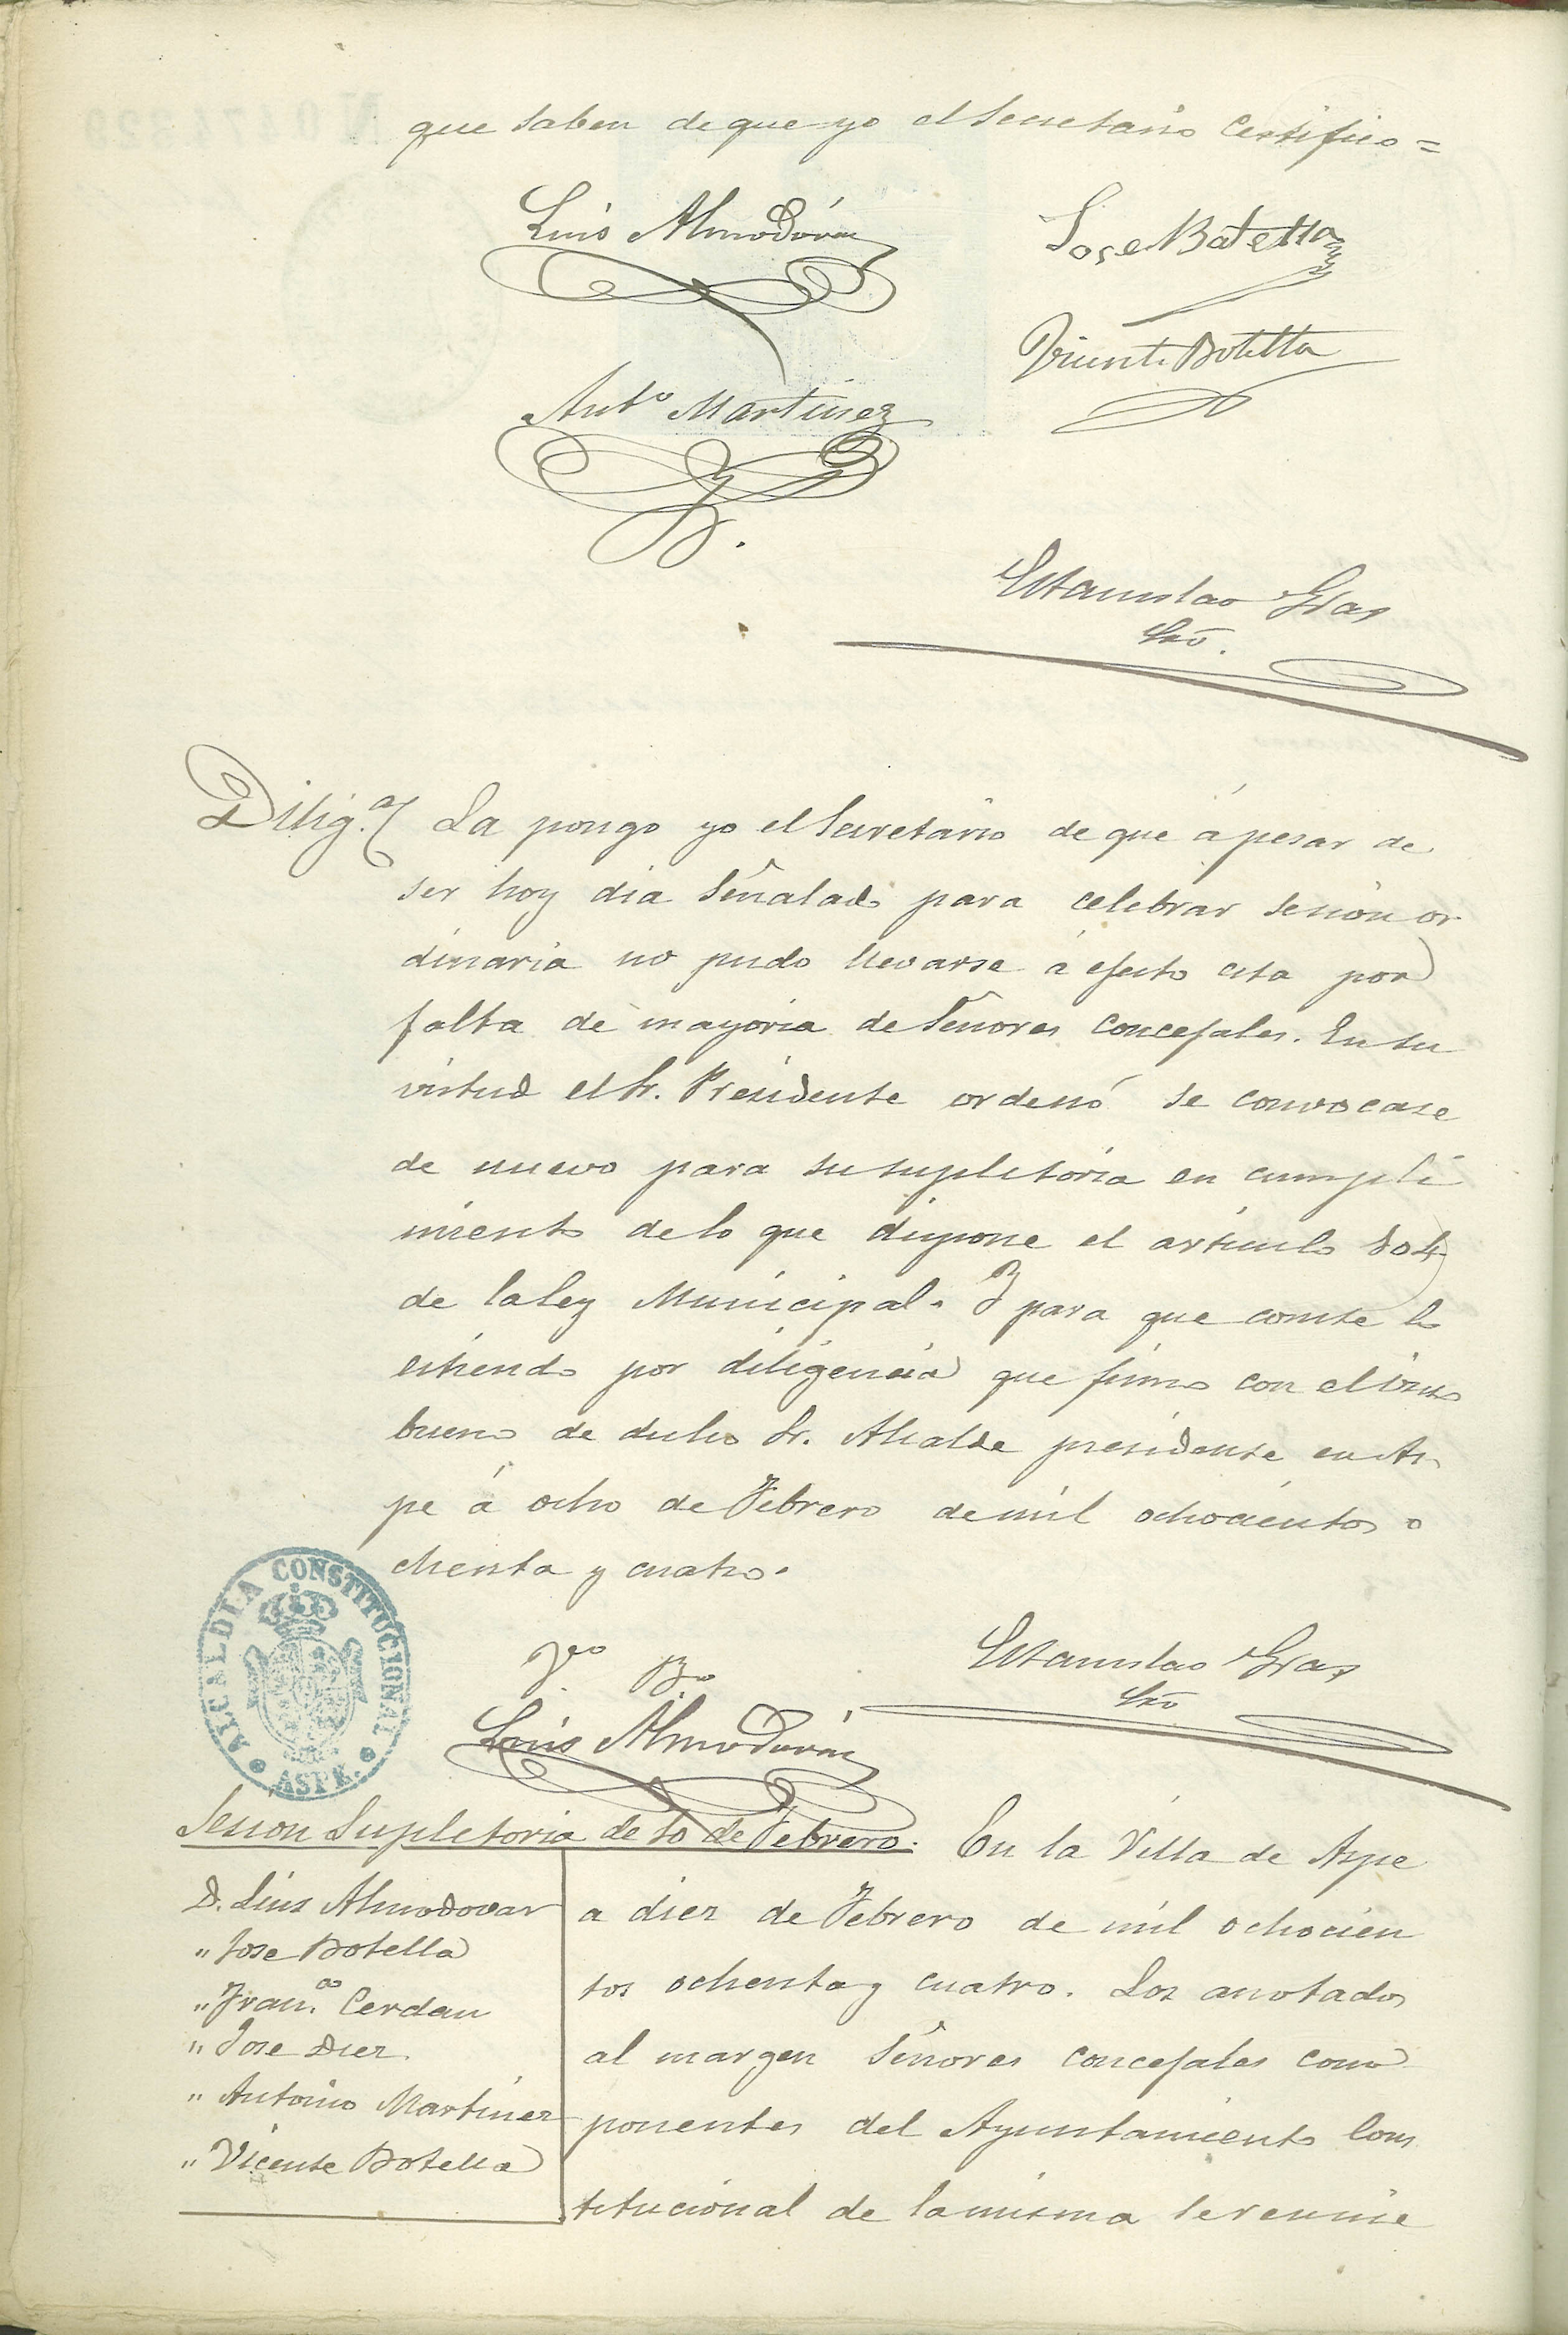 que saben de que yo el Secretario Certifico =
Luis Almodóvar
Jose Botella
Vicente Botella
Antº Martinez
Estanislao Gras
Srio.
Dilig.ª La pongo yo el Secretario de que á pesar de
ser hoy dia señalado para celebrar sesion or
dinaria no pudo llevarse á efecto esta por
falta de mayoria de Señores Concejales. En su
virtud el Sr. Presidente ordenó se convocase
de nuevo para su supletoria en cumpli
miento de lo que dispone el articulo 104
de la Ley Municipal. Y para que conste lo
estiendo por diligencia que firmo con el visto
bueno de dicho Sr. Alcalde presidente en As
pe á ocho de Febrero de mil ochocientos o
chenta y cuatro.
ALCALDIA CONSTITUCIONAL
ASPE.
Vº Bº
Estanislao Gras
Srio
Luis Almodóvar
Sesion Supletoria de 10 de Febrero.
D. Luis Almodovar
" Jose Botella
" Fran.co Cerdan
" Jose Diez
" Antonio Martinez
" Vicente Botella
En la Villa de Aspe
a diez de Febrero de mil ochocien
tos ochenta y cuatro. Los anotados
al margen Señores Concejales com
ponentes del Ayuntamiento Cons
titucional de la misma se reunie